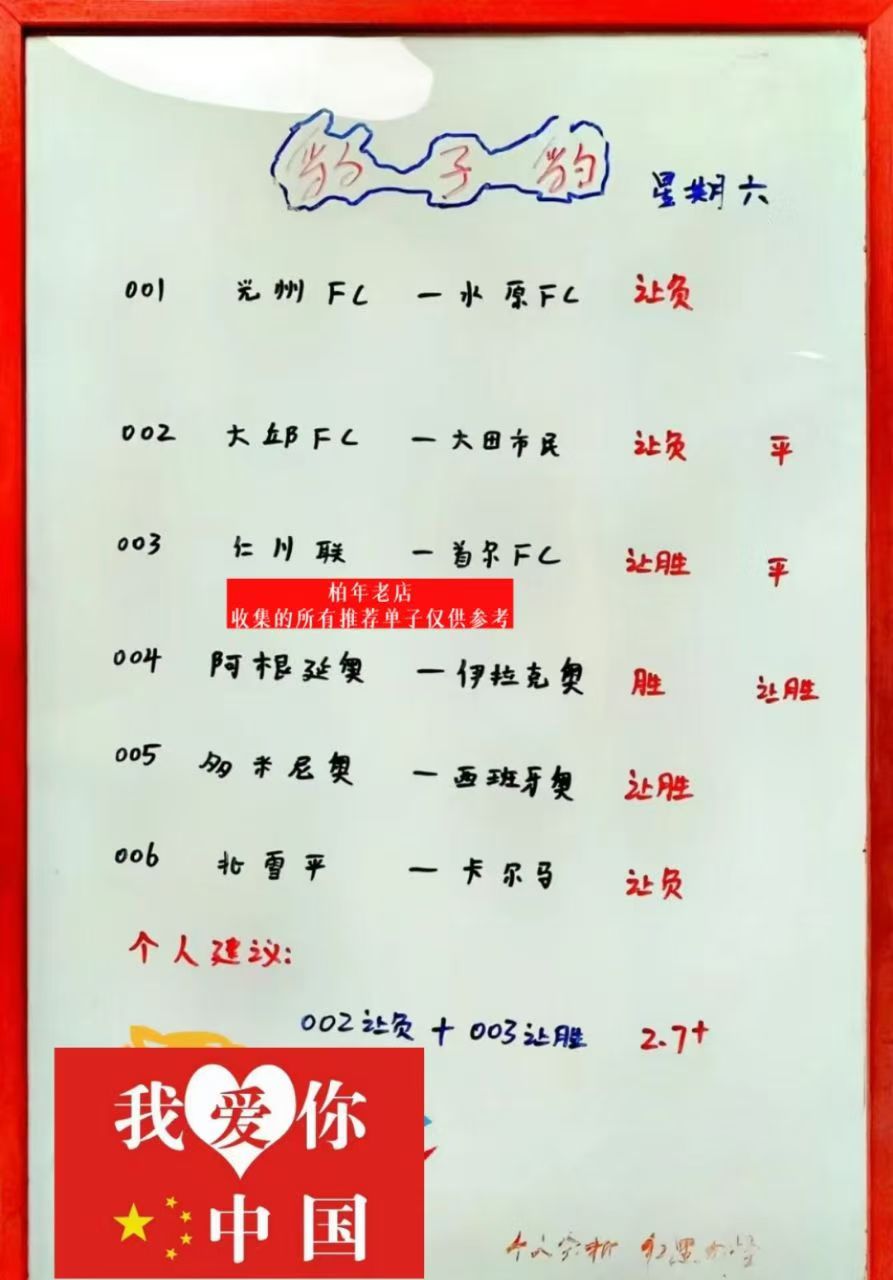 豹子豹
星期六
001 光州FC — 水原FC 让负
002 大邱FC — 大田市民 让负 平
003 仁川联 — 首尔FC 让胜 平
柏年老店
收集的所有推荐单子仅供参考
004 阿根廷奥 — 伊拉克奥 胜 让胜
005 多米尼奥 — 西班牙奥 让胜
006 北雪平 — 卡尔马 让负
个人建议:
002让负 + 003让胜 2.7+
我爱你
中国
个人分析